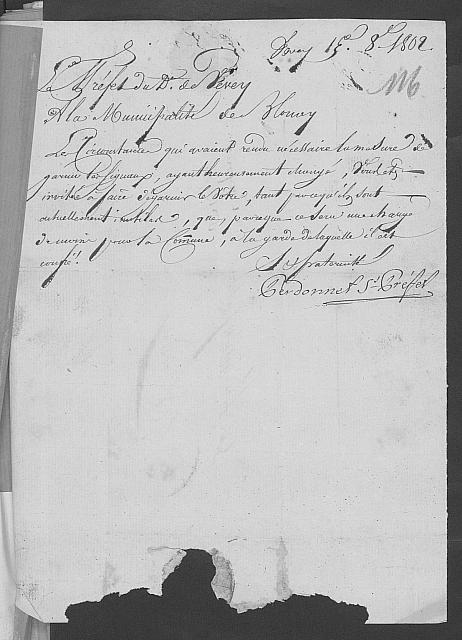 Vevey 15e. 8re 1802.
Le S. Préfet du Dt. de Vevey
A la Municipalité de Blonay
Les Circonstances qui avaient rendu nécessaire la mesure de
garnir les signaux, ayant heureusement changé, Vous êtes
invités à faire dégarnir le Votre, tant parcequ'ils sont
actuellement inutiles, que parceque ce sera une charge
de moins pour la Commune, à la garde de laquelle il est
confié.
Salut & fraternité
Perdonnet S. Préfet